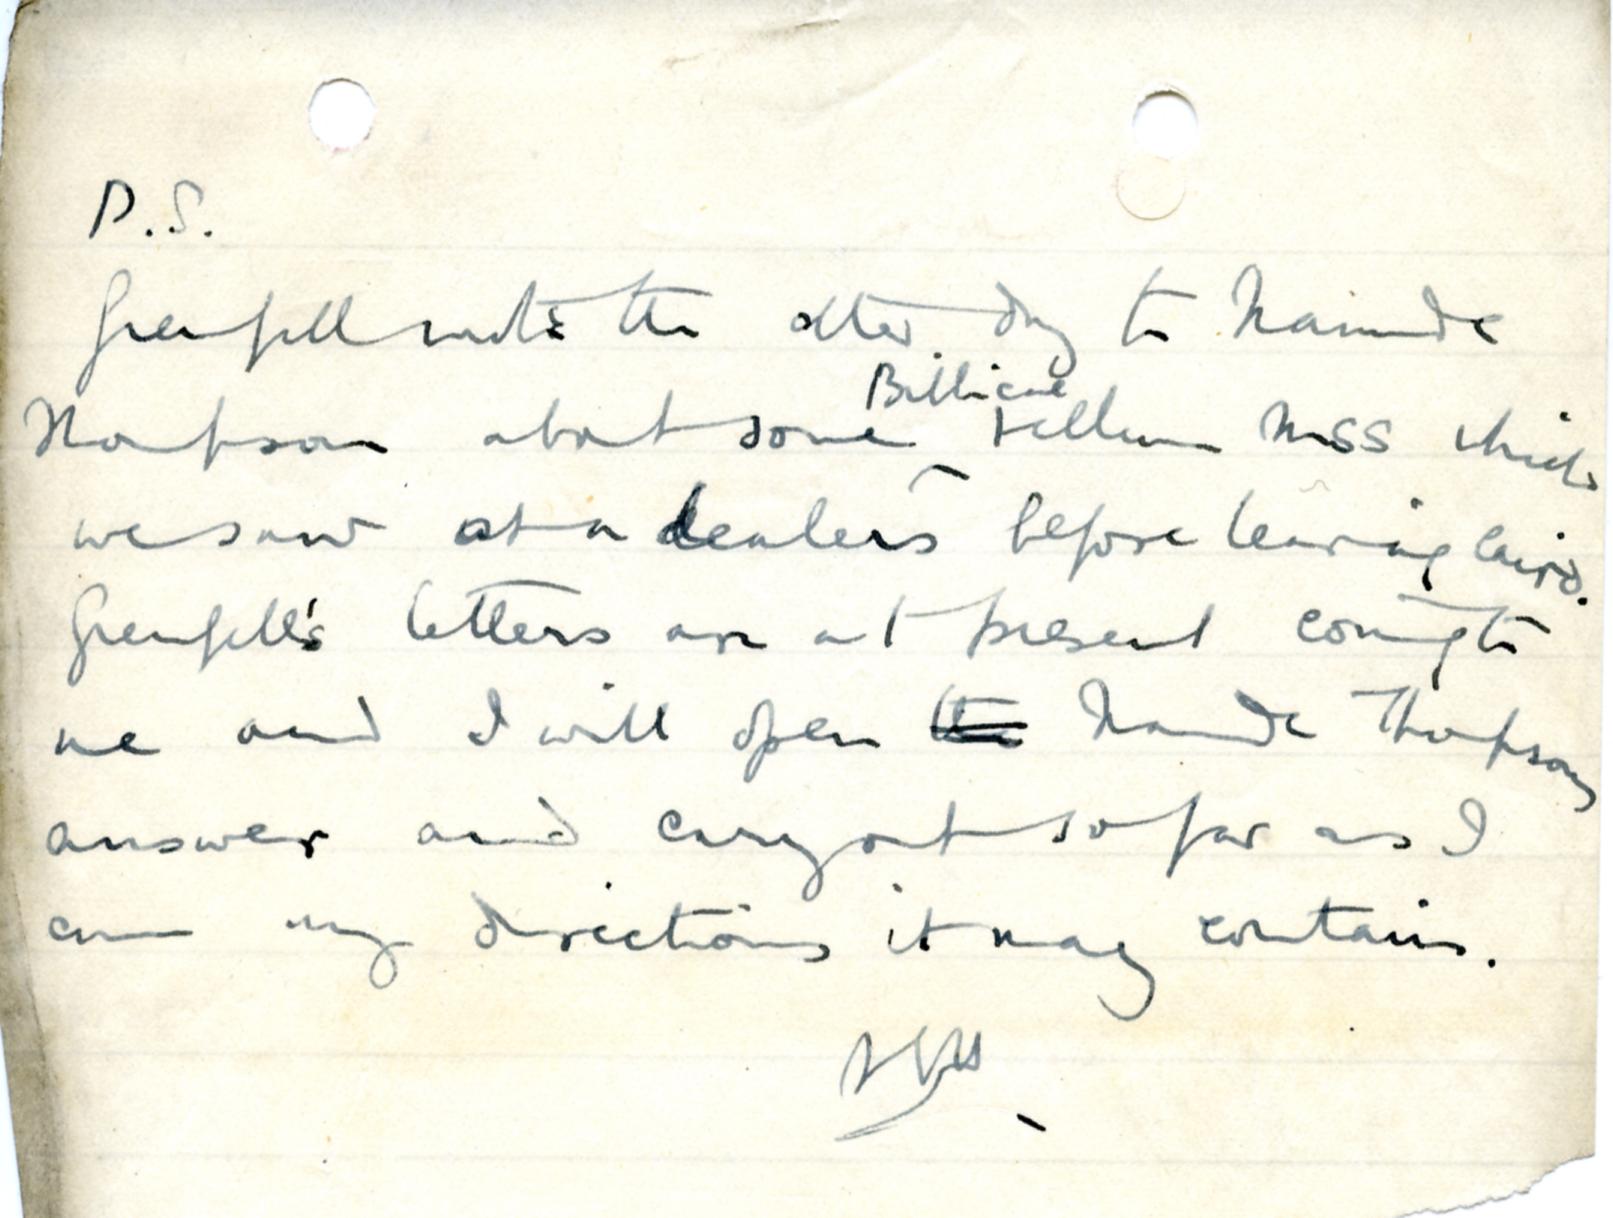 P.S.
Grenfell wrote the other day to Maunde
Thompson about some Biblical vellum MSS which
we saw at a dealer's before leaving Cairo.
Grenfell's letters are at present coming to
me and I will open the Maunde Thompson's
answer and carry out so far as I
can any directions it may contain.